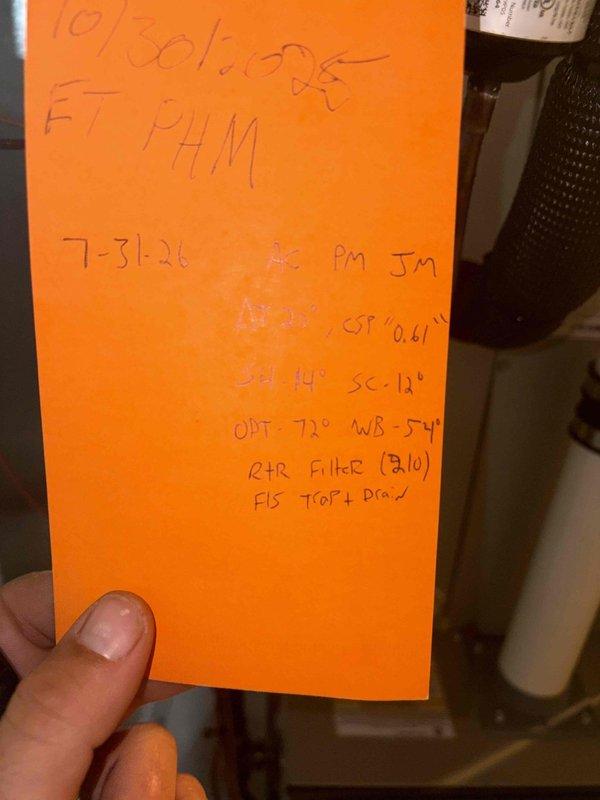 10/30/2025
FT PHM
7-31-26 AC PM JM
ΔT 20°, CSP "0.61"
SH-14° SC-12°
ODT-72° WB-54°
R+R Filter (210)
F15 Trap + Drain
Number